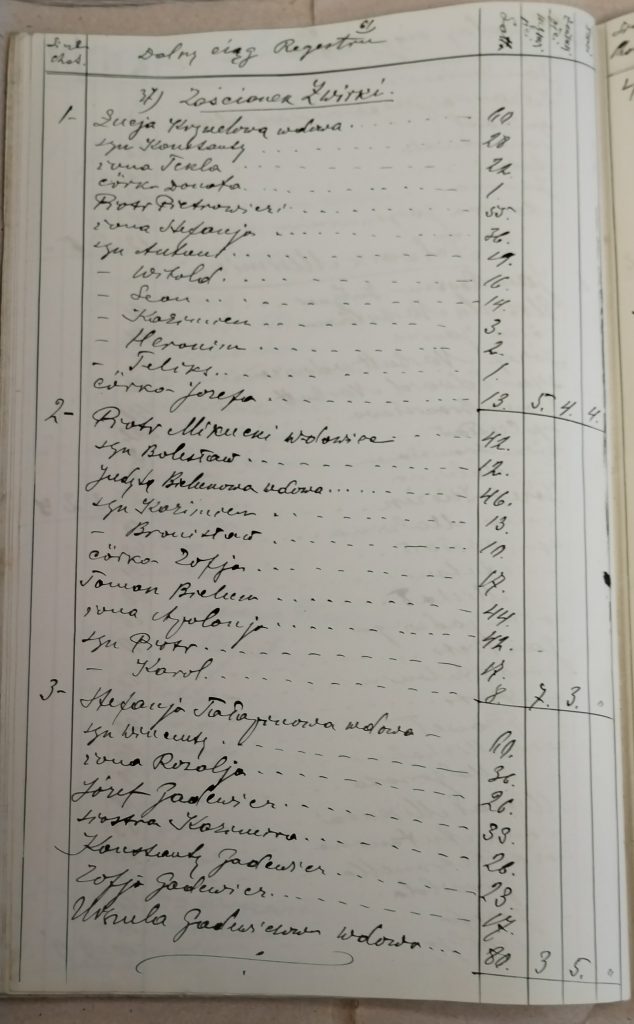 61
Dalszy ciąg Regestru
Liczb. chat.
Latta.
37) Zaścianek Żwirki.
1- Łucja Krynelowa wdowa. 60
syn Konstanty 28
żona Tekla 22
córka Donata 1.
Piotr Pietrowicz 55.
żona Stefanja 36.
syn Antoni 19.
– Witold. 16
– Leon 14.
– Kazimierz 3.
– Heronim 2.
– Feliks. 1.
córka Jozefa 13. 5. 4. 4.
2- Piotr Mikucki wdowiec 42.
syn Bolesław 12.
Judyta Bielunowa wdowa 46.
syn Kazimierz 13
– Bronisław 10.
córka Zofja 17.
Roman Bielun 44
żona Apolonja 42.
syn Piotr. 17.
– Karol. 8. 7. 3. "
3- Stefanja wdowa – 60.
syn Wincenty 36.
żona Rozalja 26.
Józef Jadewicz 33
siostra Kazimiera 26.
Konstanty Jadewicz 23
Zofja Jadewicz 17.
Urszula Jadewiczowa wdowa 80. 3 5. "